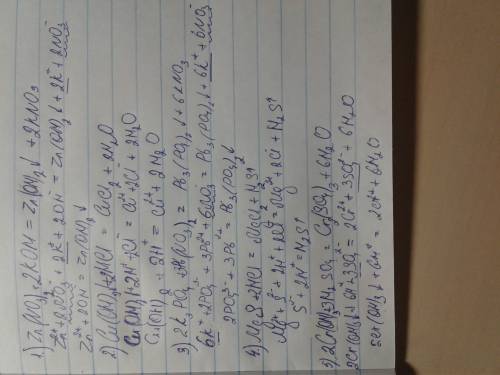 1) Zn(NO3)2+2KOH = Zn(OH)2↓+2KNO3
Zn²⁺+2NO3⁻+2K⁺+2OH⁻ = Zn(OH)2↓+2K⁺+2NO3⁻
Zn²⁺+2OH⁻ = Zn(OH)2↓
2) Cu(OH)2+2HCl = CuCl2+2H2O
Cu(OH)2+2H⁺+2Cl⁻ = Cu²⁺+2Cl⁻+2H2O
Cu(OH)2+2H⁺ = Cu²⁺+2H2O
3) 2K3PO4+3Pb(NO3)2 = Pb3(PO4)2↓+6KNO3
6K⁺+2PO4³⁻+3Pb²⁺+6NO3⁻ = Pb3(PO4)2↓+6K⁺+6NO3⁻
2PO4³⁻+3Pb²⁺ = Pb3(PO4)2↓
4) MgS+2HCl = MgCl2+H2S↑
Mg²⁺+S²⁻+2H⁺+2Cl⁻ = Mg²⁺+2Cl⁻+H2S↑
S²⁻+2H⁺ = H2S↑
5) 2Cr(OH)3+3H2SO4 = Cr2(SO4)3+6H2O
2Cr(OH)3↓+6H⁺+3SO4²⁻ = 2Cr³⁺+3SO4²⁻+6H2O
2Cr(OH)3↓+6H⁺ = 2Cr³⁺+6H2O